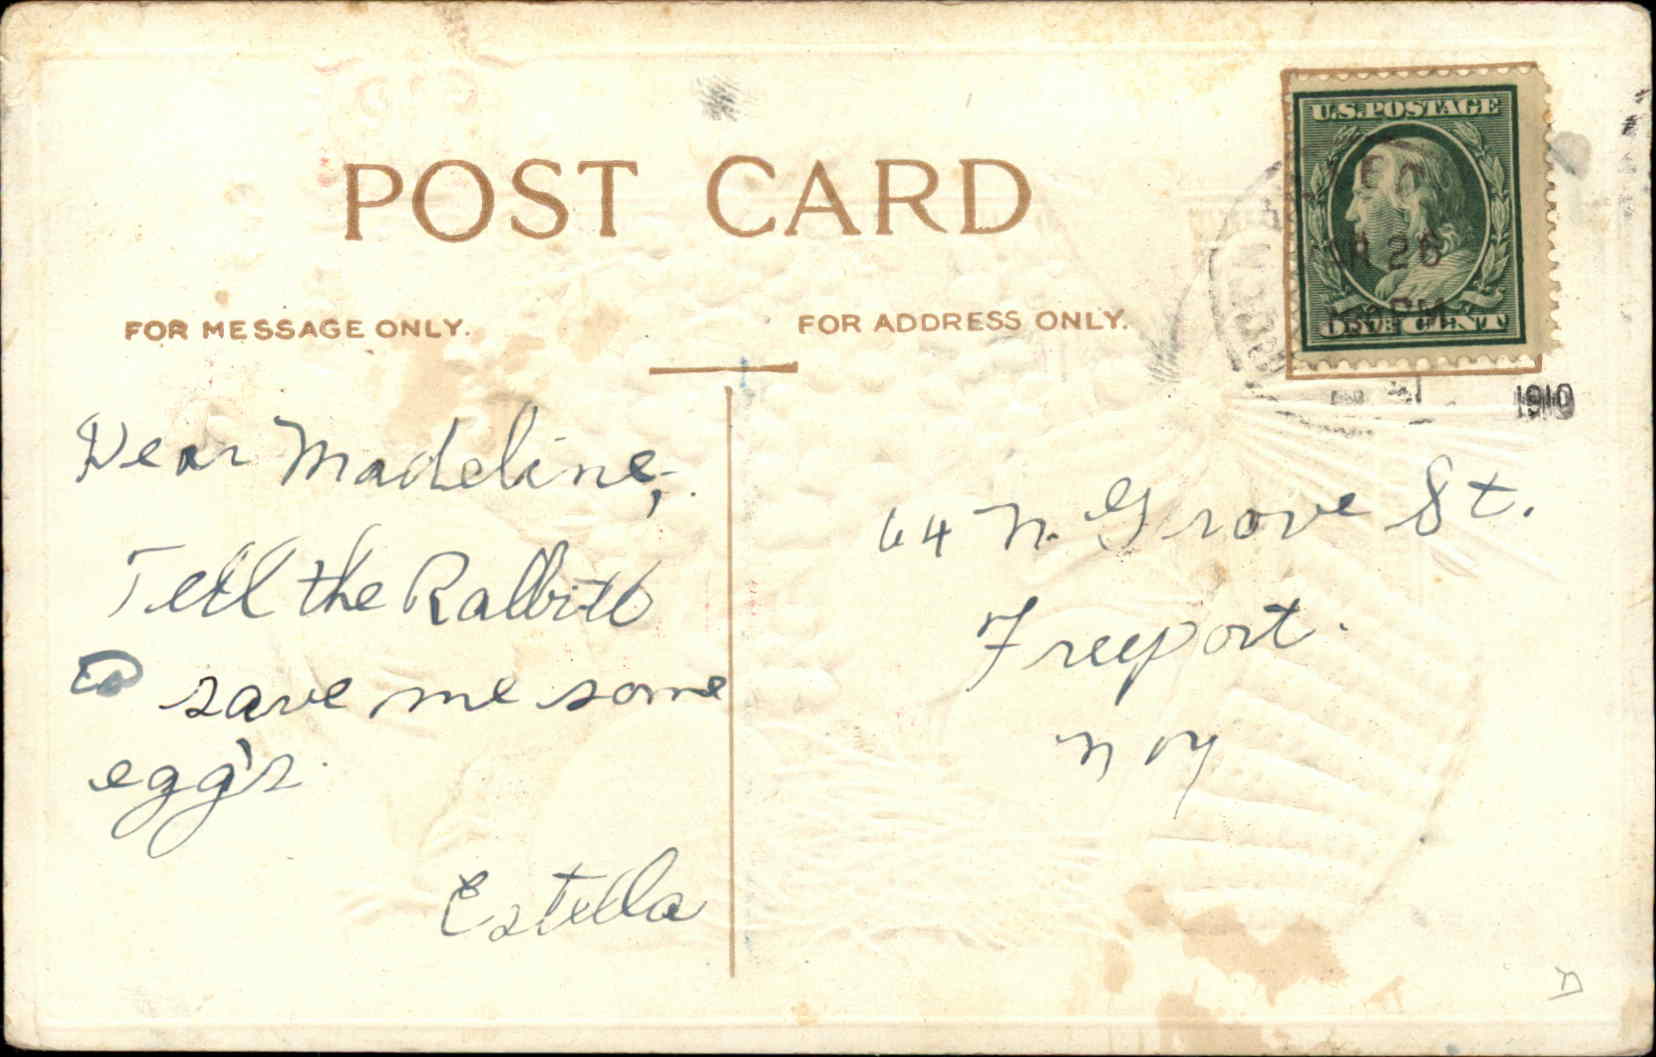 POST CARD
U.S.POSTAGE
26
PM
ONE CENT
1910
FOR MESSAGE ONLY.
FOR ADDRESS ONLY.
Dear Madeline,
Tell the Rabbitt
to save me some
egg's.
Estella
64 N. Grove St.
Freeport.
N Y
D